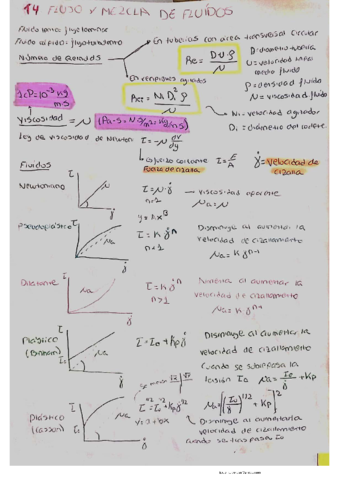 T4 FLUJO Y MEZCLA DE FLUÍDOS
Fluido lento: flujo laminar
Fluido rápido: flujo turbulento
Número de Reynolds
En tuberías con area transversal circular
Re = Dυρ/μ
D = diámetro tubería
υ = velocidad
fluido
ρ = densidad fluido
μ = viscosidad fluido
En recipientes agitados
Re = N Di² ρ/μ
N = velocidad agitador
Di = diámetro del
1cP = 10⁻³ kg/m·s
Viscosidad = μ
(Pa·s = N·s/m² = kg/m·s)
Ley de viscosidad de Newton: τ = μ dv/dy
esfuerzo cortante
fuerza de cizalla
τ = F/A
γ̇ = velocidad de cizalla
Fluidos
Newtoniano
τ
μa
γ̇
τ = μ·γ̇
n=1
viscosidad aparente
μa = μ
Pseudoplástico
τ
μa
γ̇
τ = K γ̇ⁿ
n<1
Disminuye al aumentar la
velocidad de cizallamiento
μa = K γ̇ⁿ⁻¹
Dilatante
τ
μa
γ̇
τ = K γ̇ⁿ
n>1
Aumenta al aumentar la
velocidad de cizallamiento
Plástico
(Bingham)
τ
μa
γ̇
τ = τ₀ + Kp γ̇
Disminuye al aumentar la
velocidad de cizallamiento
Cuando se sobrepasa la
tensión τ₀ μa = τ₀/γ̇ + Kp
Plástico
(Casson)
τ
μa
γ̇
τ^1/2 = τ₀^1/2 + Kp γ̇^1/2
Disminuye al aumentar la
velocidad de cizallamiento
cuando se traspasa τ₀